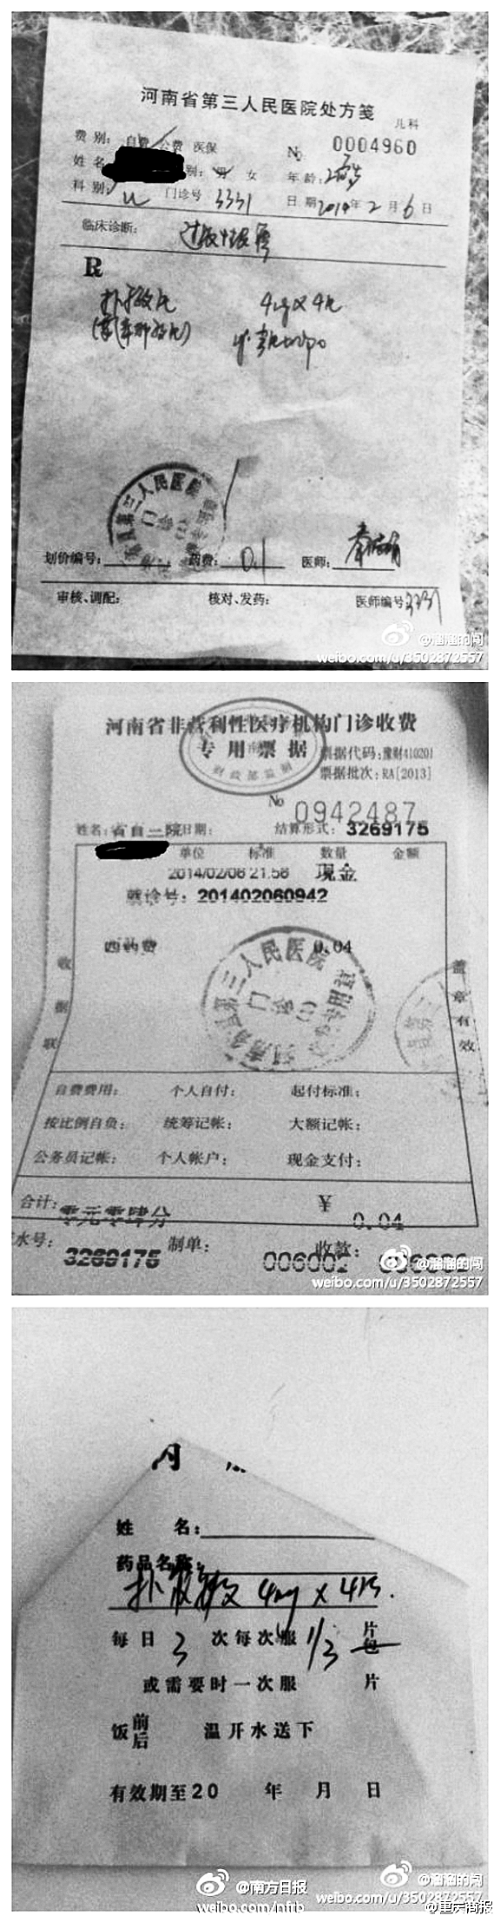 河南省第三人民医院处方笺
儿科
费 别: 自费 公费 医保
No. 0004960
姓 名 别: 男 女 年 龄:
科 别: 门诊号 3331 日 期 2014 年 2 月 6 日
临床诊断:
R
扑敏 4mg×4片
河南省第三人民医院
门诊
划价编号: 药费: 0.1 医师:
审核、调配: 核对、发药: 医师编号 3331
@溜溜的闯
weibo.com/u/3502872557
河南省非营利性医疗机构门诊收费
专 用 票 据
财政部监制
票据代码: 豫财410201
票据批次: RA[2013]
No 0942487
姓名: 省直三院 日期: 结算形式: 3269175
单位 标准 数量 金额
2014/02/06 21:58 现金
就诊号: 201402060942
西药费 0.04
收 据 联
盖 章 有 效
河南省第三人民医院
门诊
自费费用: 个人自付: 起付标准:
按比例自负: 统筹记帐: 大额记帐:
公务员记帐: 个人帐户: 现金支付:
合计: 零元零肆分 ¥ 0.04
水号: 3269175 制单: 006002 收款:
@溜溜的闯
weibo.com/u/3502872557
姓 名:
药品名称:
扑敏 4mg×4片
每日 3 次每次服 1/3 片 包
或需要时一次服 片
饭 前 后 温开水送下
有效期至20 年 月 日
@南方日报
weibo.com/nfrb
@溜溜的闯
weibo.com/u/3502872557
@重庆商报